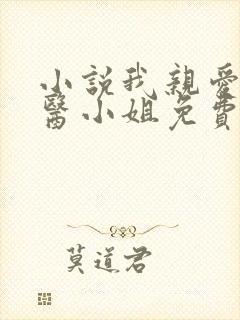 小説我親愛
醫小姐免費
莫道君